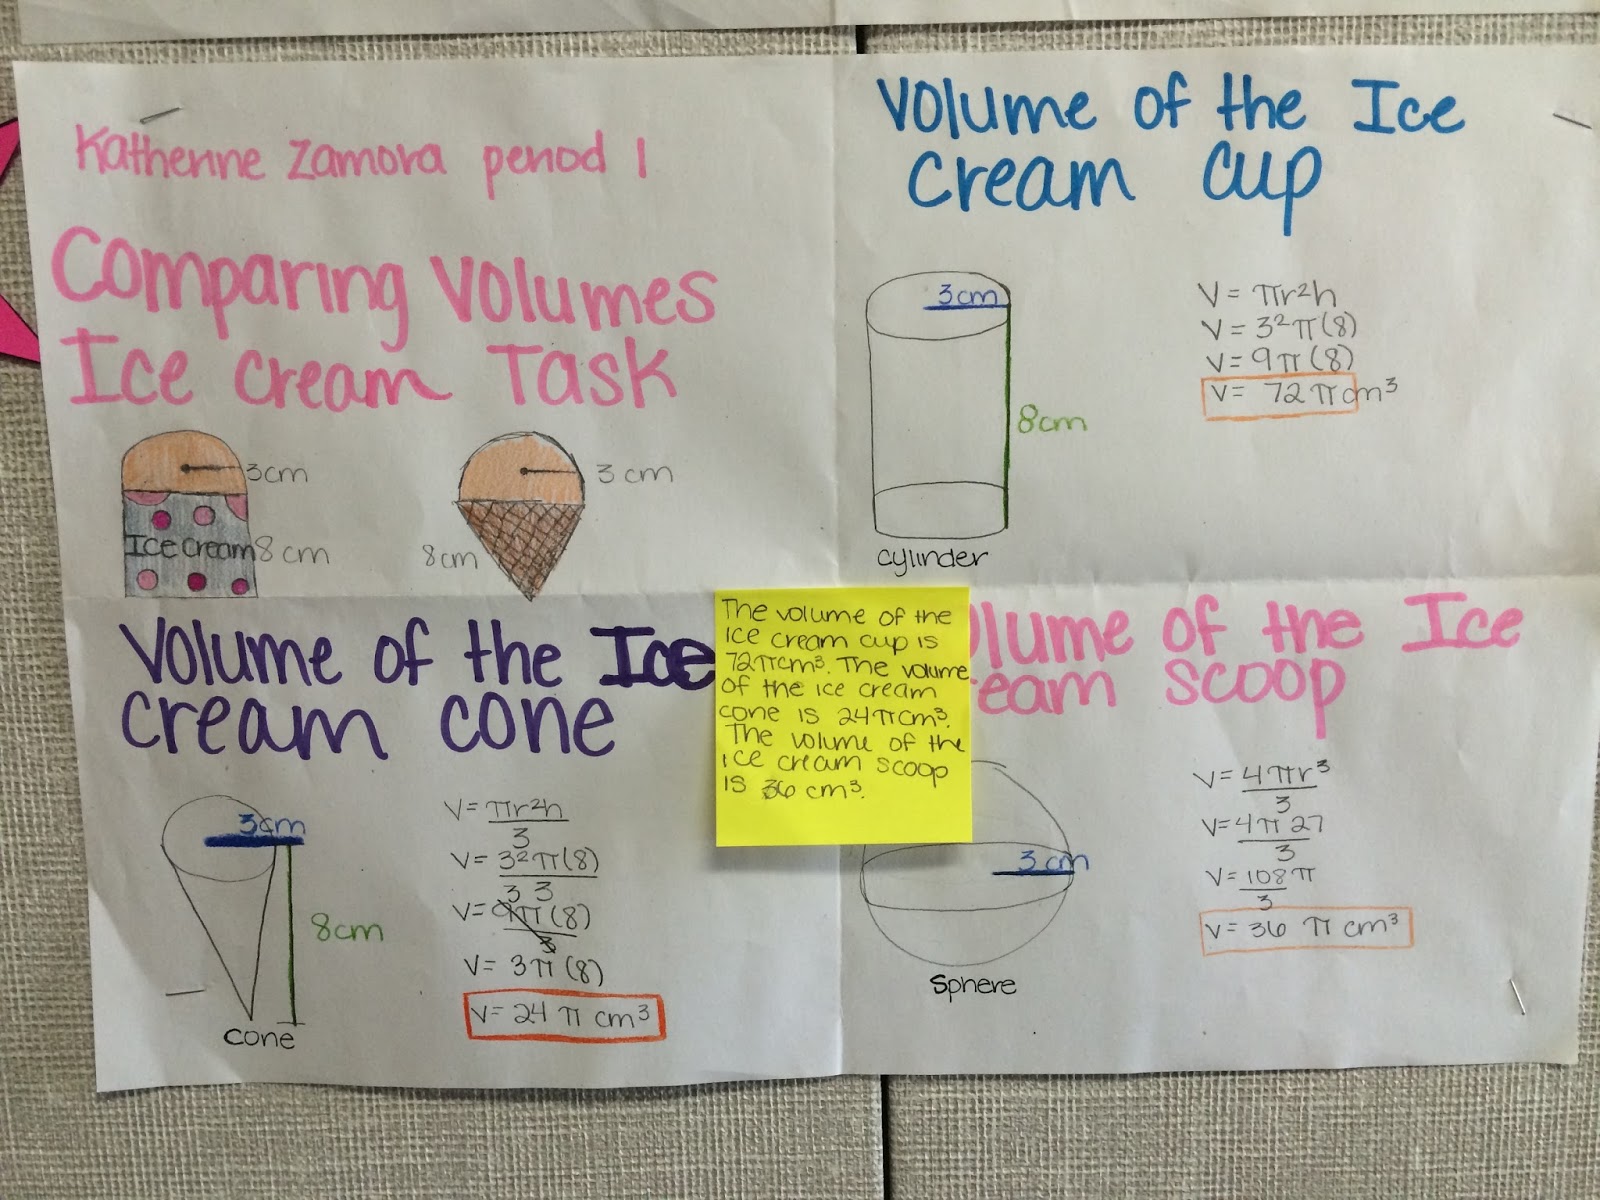 Katherine Zamora period 1
Comparing Volumes
Ice cream Task
3cm
Ice cream
8cm
3cm
8cm
Volume of the Ice
cream cup
3cm
8cm
cylinder
V = πr²h
V = 3²π(8)
V = 9π(8)
V = 72πcm³
Volume of the Ice
cream cone
3cm
8cm
cone
V = πr²h
3
V = 3²π(8)
3
3
V = 9π(8)
3
V = 3π(8)
V = 24πcm³
The volume of the
ice cream cup is
72πcm³. The volume
of the ice cream
cone is 24πcm³.
The volume of the
ice cream scoop
is 36 cm³.
olume of the Ice
eam scoop
3cm
sphere
V = 4πr³
3
V = 4π27
3
V = 108π
3
V = 36 π cm³